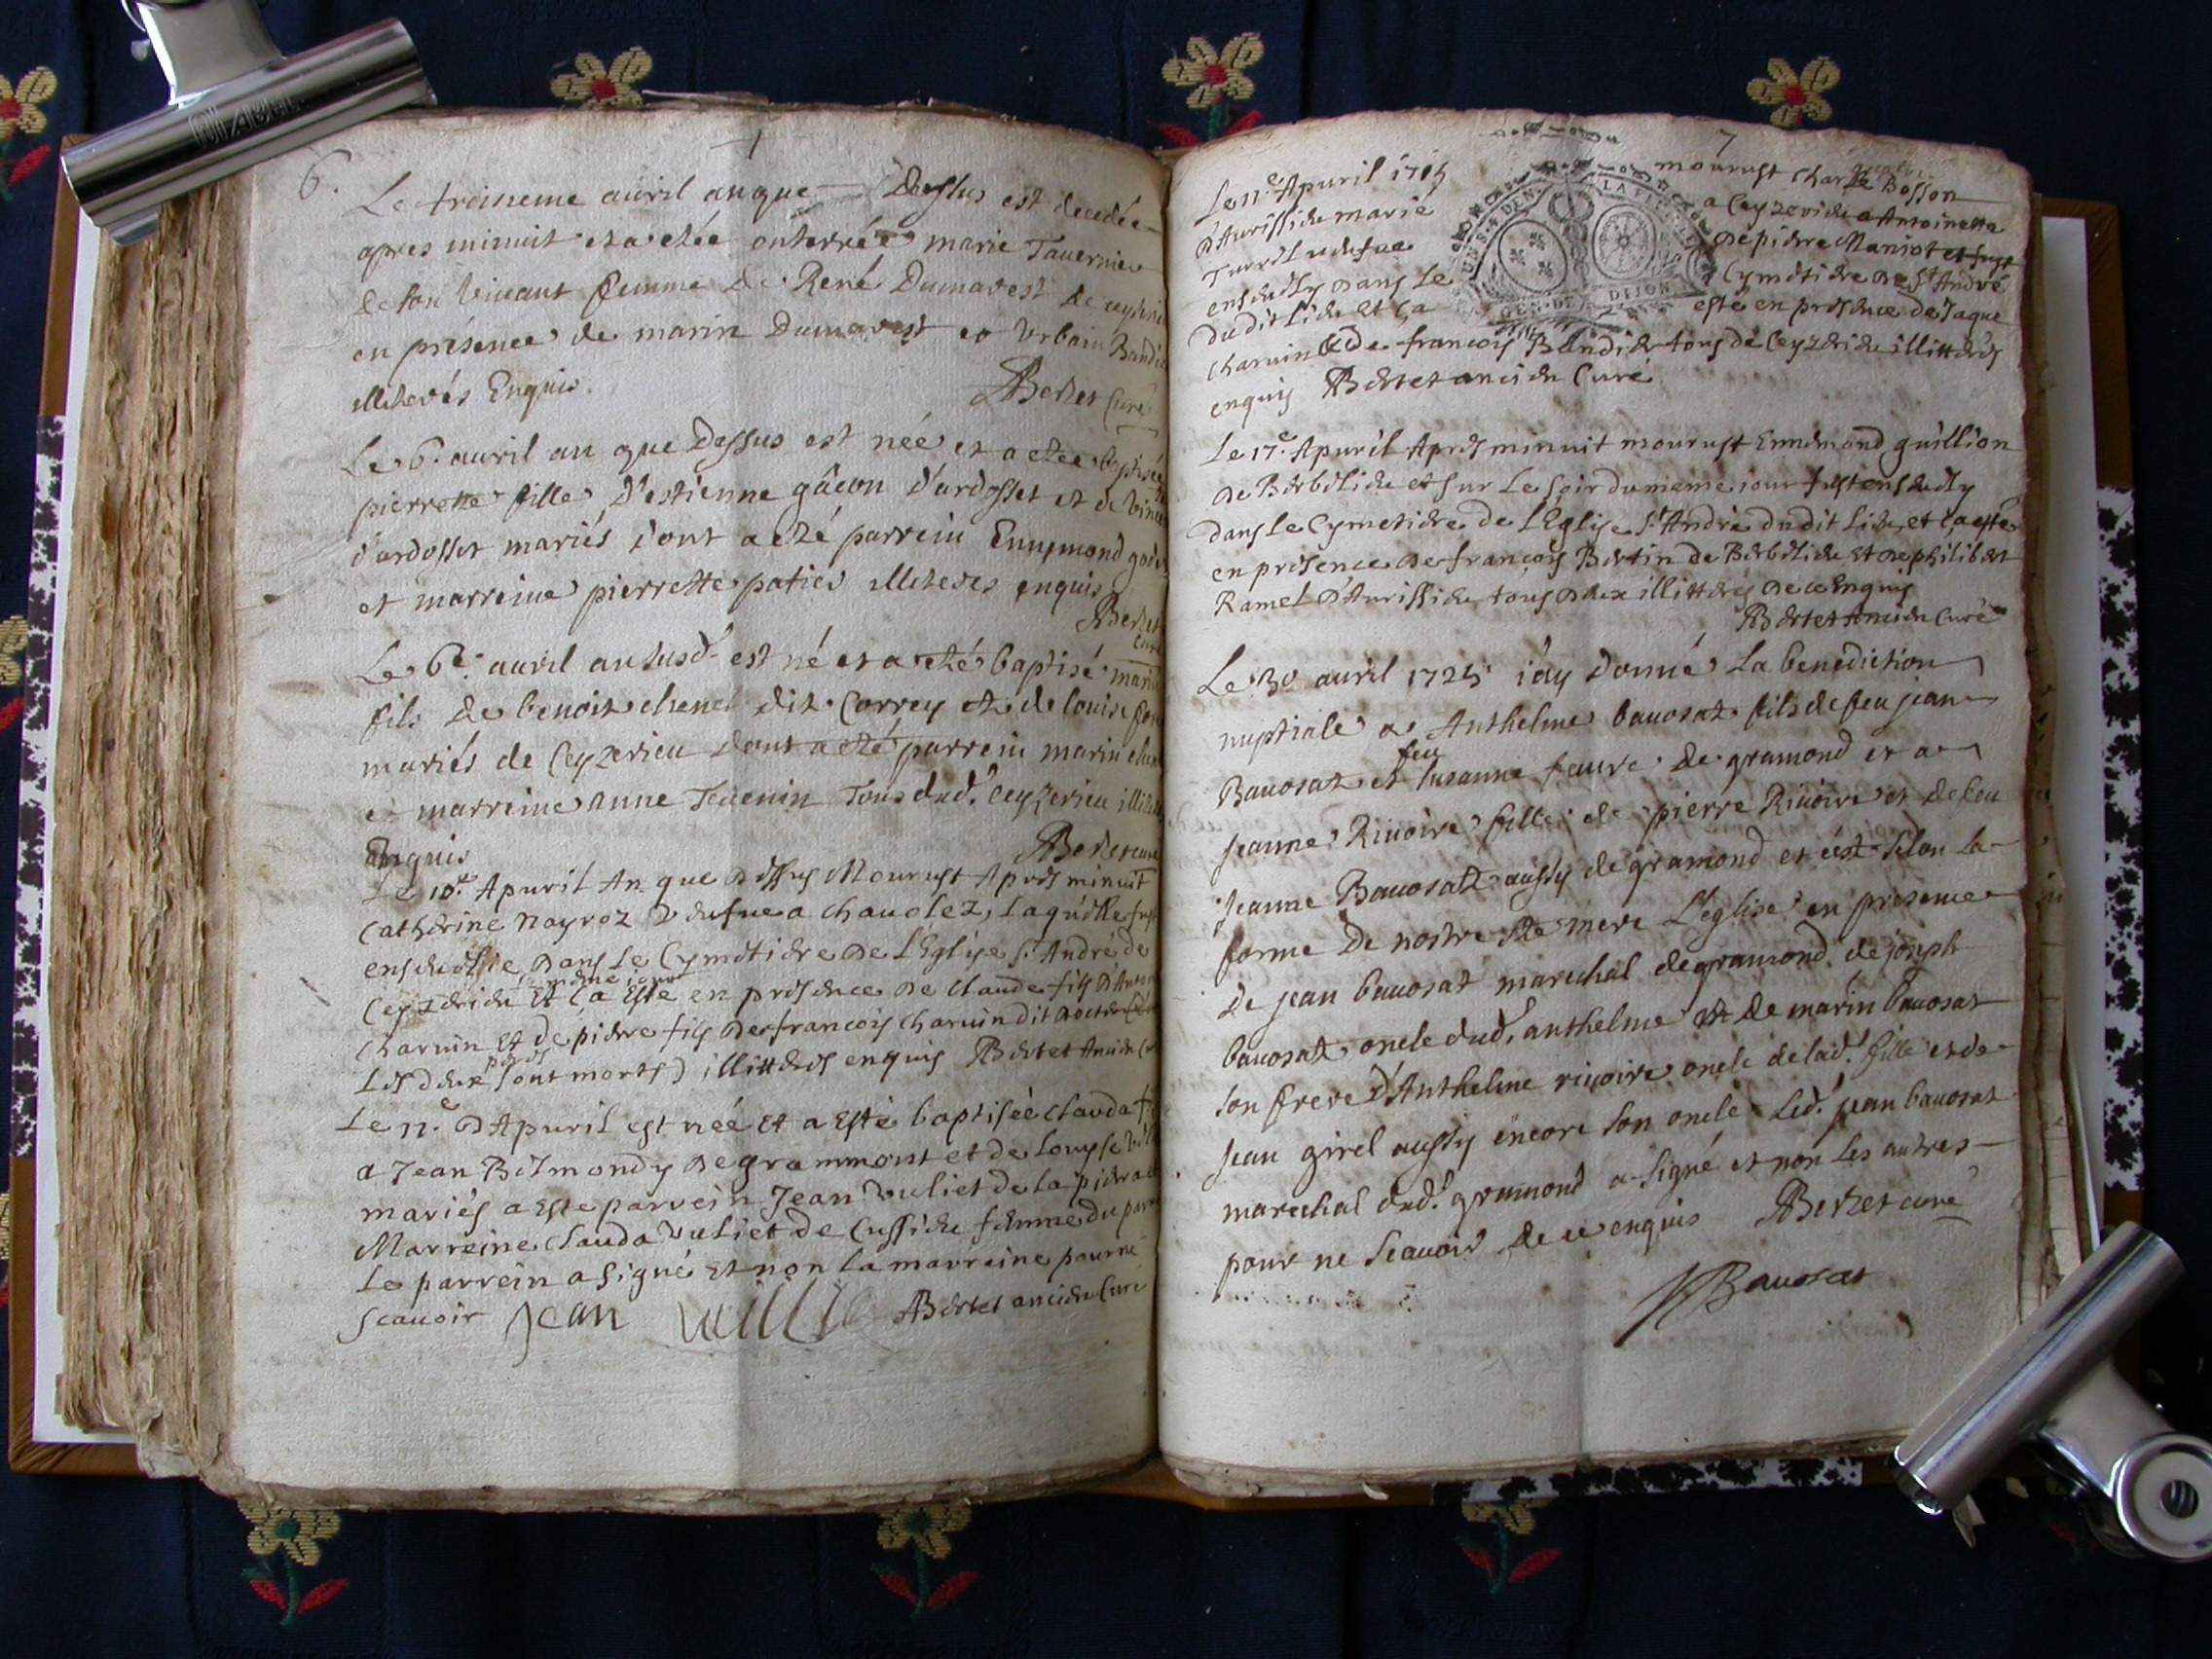 6.
Le troisieme auril an que Dessus est decedée
apres minuit et a etée enterrée marie Tauernier
de son viuant femme de René Dumarest de
en présence de marin Dumarest et Vrbain
illiterés Enquis.
Bertet Curé
Le 6. auril an que Dessus est née et a etée baptisée
pierrette fille d'estienne gâcon d'ardosset et de
d'ardosset mariés dont a eté parrein Ennymond
et marreine pierrette patier illiteres enquis
Bertet
Curé
Le 6e. auril an susd. est né et a eté baptisé marin
fils de benoit chenet dit Correy et de louise
mariés de Ceyzerieu dont a eté parrein marin
et marreine anne Teuenin Tous dud. Ceyzerieu
Enquis
Bertet curé
Le 10e Apuril An que dessus Mourust Aprés minuit
Catherine nayroz veufue a chauolez, laquelle fust
enseuelie dans Le Cymetiere de L'Eglise St André de
mesme iour
Ceyzerieu Et ça Esté en presence de Claude fils
charuin Et de pierre fils de françois charuin dit
peres
Les deux sont morts) illitterés enquis Bertet Ancien
Le 11e. D'Apuril est née Et a Esté baptiseé Clauda
a Jean de grammont et de Louyse
mariés a Este parrein Jean Vuliet de la
Marreine Clauda Vuliet de Cussieu femme du
Le parrein a signé Et non la marreine pour ne
scauoir Jean Bertet ancien Curé
7
GEN. DE DIJON
Le 11e. Apuril 1725 mourust
d'Aurissieu marié a Ceyzerieu a Antoinette
veufue de pierre Maniot et fust
enseuely dans Le Cymetiere de St André
du dit Lieu Et ça esté en presence de Jaque
charuin & de françois tous de Ceyzerieu illitterés
enquis Bertet ancien Curé
Le 17e. Apuril Aprés minuit mourust Ennemond guillion
de Berbelieu et sur Le soir du meme iour fust enseuely
dans Le Cymetiere de L'Eglise St André du dit Lieu, et ça esté
en presence de françois Bertin de Berbelieu Et de philibert
Ramel d'Aurissieu tous deux illitterés de ce Enquis
Bertet Ancien Curé
Le 30 auril 1725 i'ay Donné La benediction
nuptiale a Anthelme bauosat fils de feu jean
feu
Bauosat et susanne faure de gramond et a
jeanne Riuoire fille de pierre Riuoire et de feu
jeanne Bauosat aussy de gramond et c'est selon la
forme De nostre Ste mere L'eglise en presence
De jean bauosat marechal de gramond de joseph
bauosat oncle dud. anthelme Et De marin bauosat
son frere D'Anthelme riuoire oncle de lad. fille et de
jean girel aussy encore son oncle Led. jean bauosat
marechal dud. gramond a signé et non Les autres
pour ne scauoir de ce enquis Bertet curé
J Bauosat